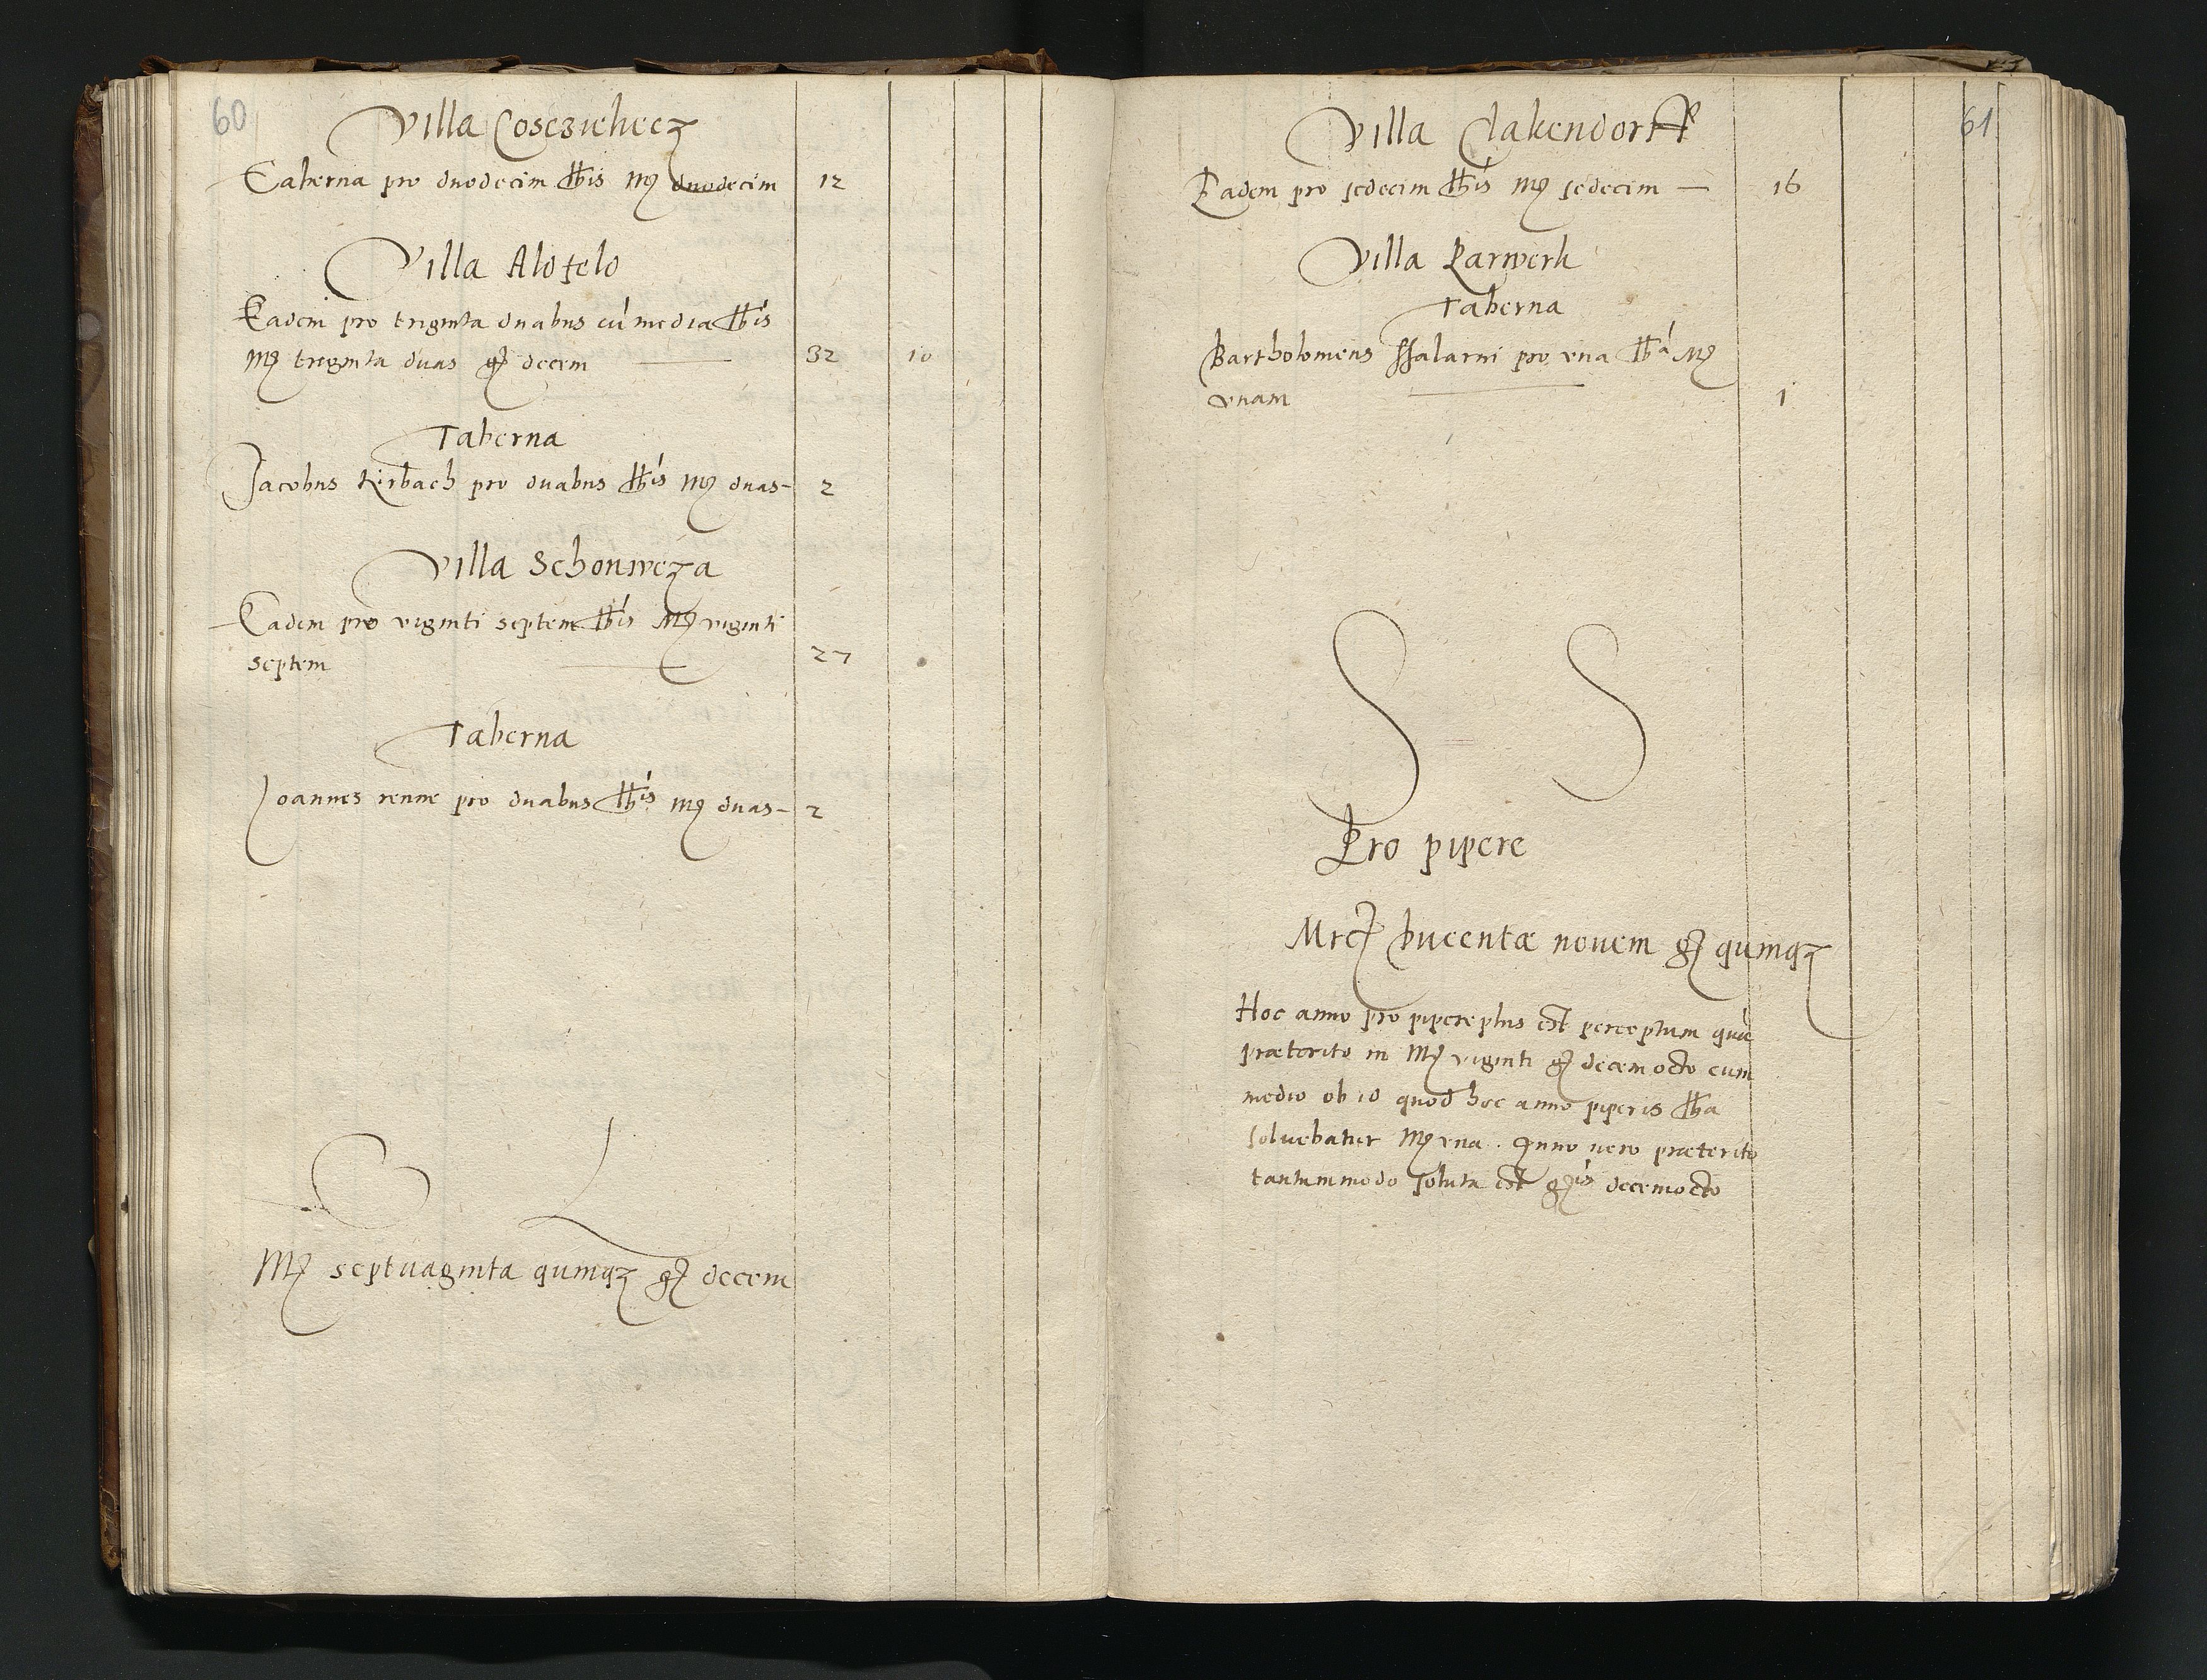 60
Villa Coscziehecz
Taberna pro duodecim lbis Mr duodecim 12
Villa Alofelo
Eadem pro triginta duabus cu media lbis
Mr triginta duas gr decem 32 10
Taberna
Jacobus Kirbach pro duabus lbis Mr duas 2
Villa Schonweza
Eadem pro viginti septem lbis Mr viginti
septem 27
Taberna
Joannes renne pro duabus lbis Mr duas 2
Mr septuaginta quinqz gr decem
61
Villa Clakendorff
Eadem pro sedecim lbis Mr sedecim 16
Villa Parwerk
Taberna
Bartholomeus ffalarni pro una lba Mr
vnam 1
S S
Pro pipere
Mrc ducentæ novem gr quinqz
Hoc anno pro pipere plus est perceptum qua
præterito in Mr viginti gr decemocto cum
medio ob id quod hoc anno piperis lba
solvebatur Mr vna. Anno vero præterito
tantummodo soluta est gris decemocto